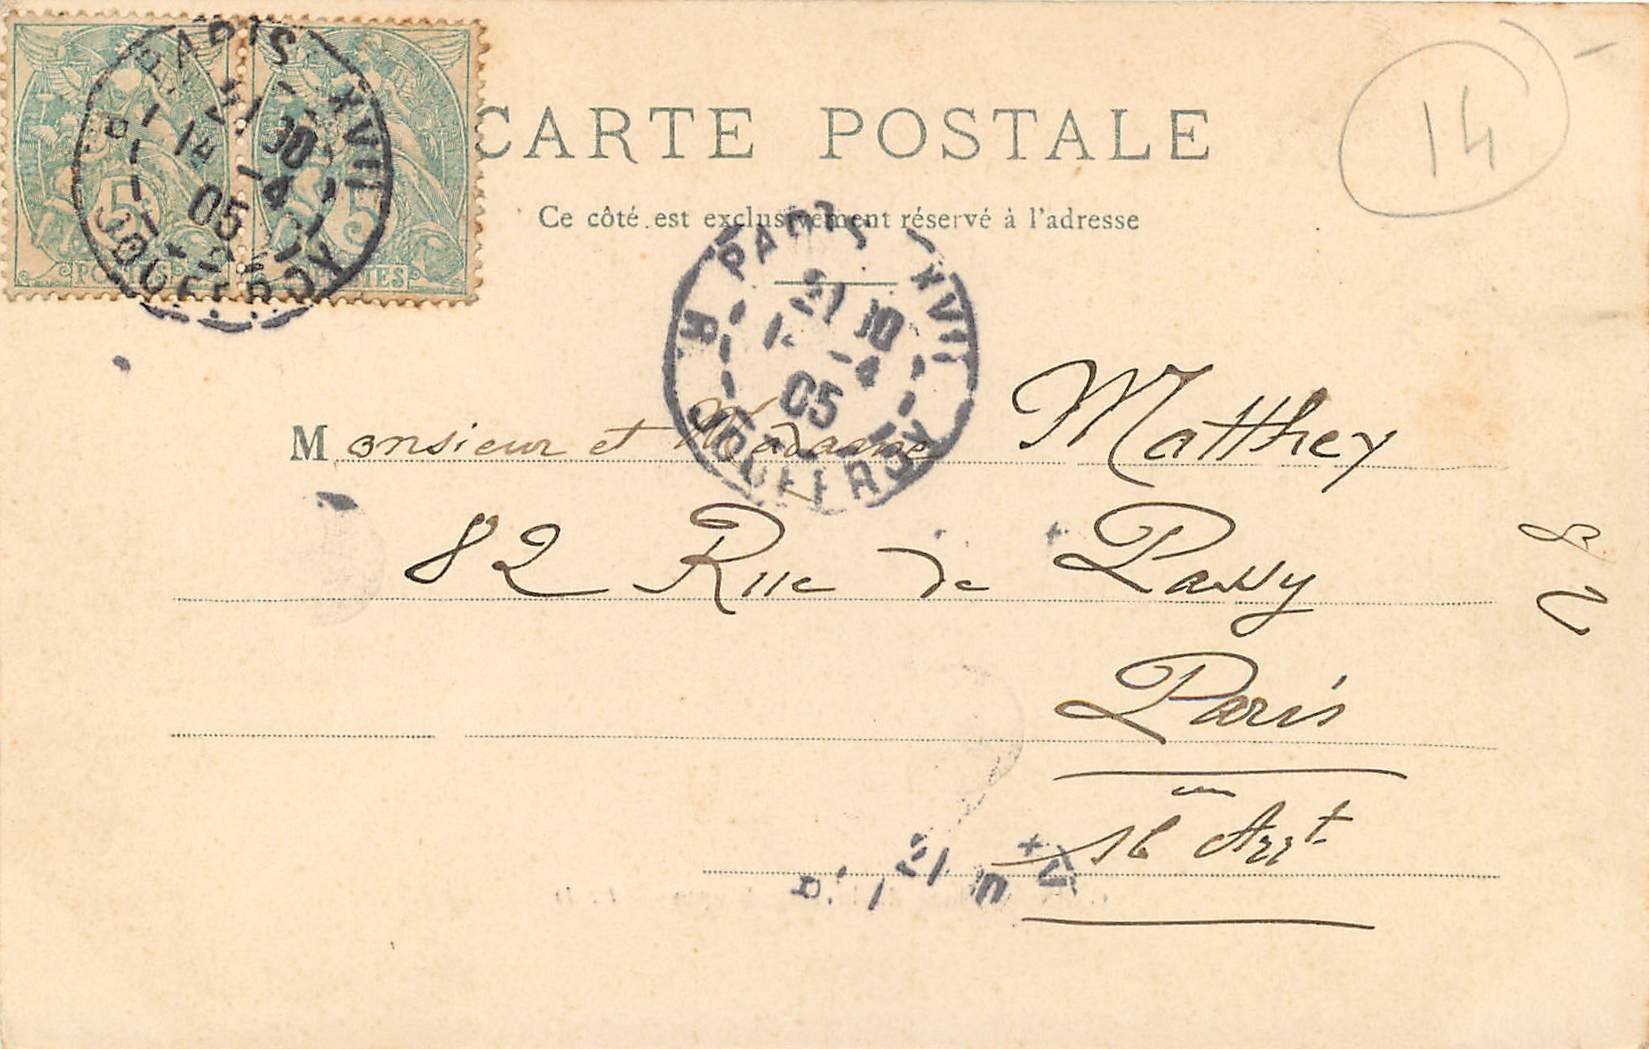 CARTE POSTALE
14
Ce côté est exclusivement réservé à l'adresse
PARIS XVII
R. JOUFFROY
21 30
14 -4
05
5
5
POSTES
POSTES
PARIS XVII
R. JOUFFROY
21 30
-4
05
Monsieur et Madame Matthey
82 Rue de Passy
Paris
16 Arrt